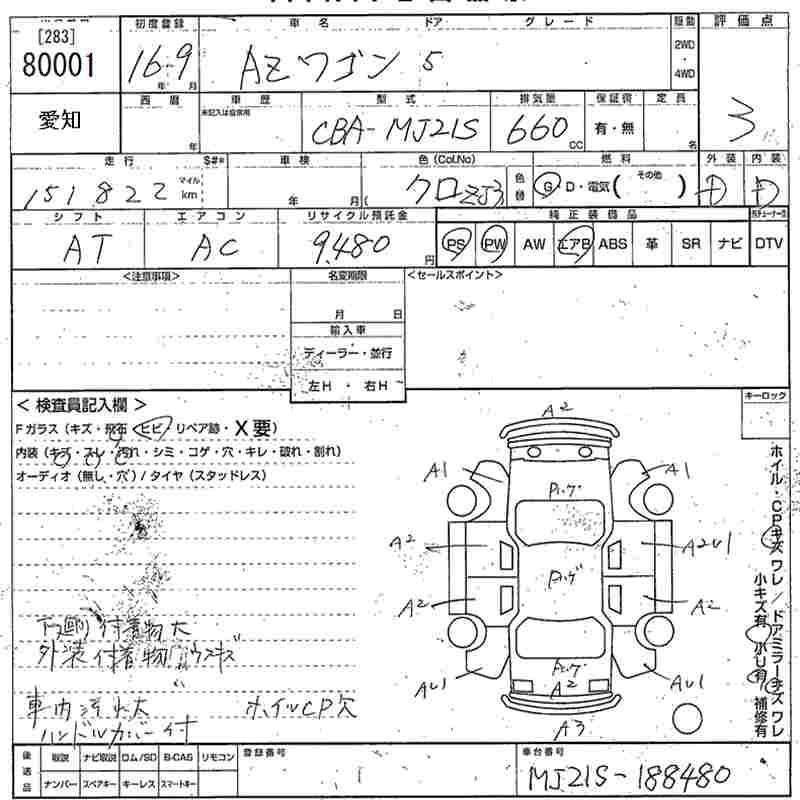 [283] 初度登録 車名 ドア グレード 駆動 評価点
80001 16年9月 AZワゴン 5 2WD・4WD 3
愛知 西暦 年 車歴 未記入は自家用 型式 CBA-MJ21S 排気量 660cc 保証書 有・無 定員 名
走行 $#* 車検 色(Col.No) 燃料 外装 内装
151822 マイル km 年 月( クロ ZJ3 色替 G D・電気 ( その他 ) D D
シフト エアコン リサイクル預託金 純正装備品
AT AC 9,480円 PS PW AW エアB ABS 革 SR ナビ DTV
<注意事項> 名変期限 <セールスポイント>
月 日
輸入車
ディーラー・並行
左H・右H
<検査員記入欄> キーロック
Fガラス(キズ・飛石・ヒビ・リペア跡・X要)
内装(キズ・スレ・汚れ・シミ・コゲ・穴・キレ・破れ・割れ)
オーディオ(無し・穴)/タイヤ(スタッドレス)
A2
A1 A1
A2 A2U1
A2 A2
AU1 A2 AU1
A3
ホイル・CPキズ ワレ/ドアミラーキズ ワレ
小キズ有 小U有 補修有
下廻り付着物大
外装付着物
車内汚れ大 ホイルCP欠
ハンドルカバー付
後送品 取説 ナビ取説 ロム/SD B-CAS リモコン 登録番号 車台番号
ナンバー スペアキー キーレス スマートキー MJ21S-188480